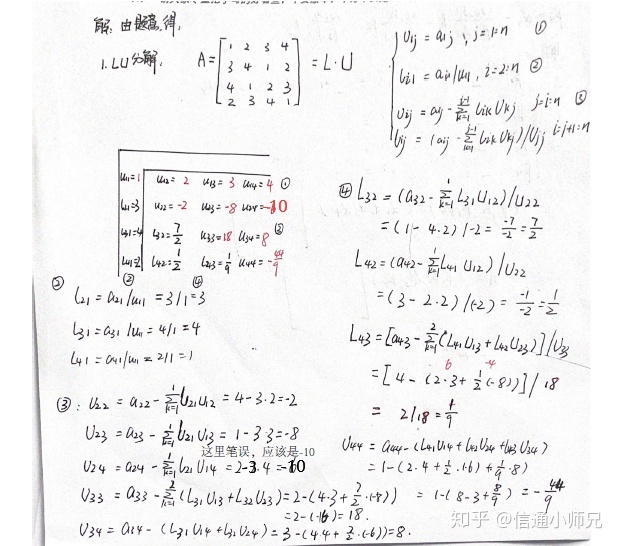 解: 由题意, 得,
1. LU分解, A = [1 2 3 4
3 4 1 2
4 1 2 3
2 3 4 1] = L·U
U1j = a1j , j=1:n ①
Li1 = ai1/u11 , i=2:n ②
Uij = aij - Σ Lik Ukj j=i:n ③
Lij = (aij - Σ Lik Ukj)/Ujj i=j+1:n
u11=1 u12=2 u13=3 u14=4 ①
L21=3 u22=-2 u23=-8 u24=-10
L31=4 L32=7/2 u33=18 u34=8 ③
L42=1/2 L43=1/9 u44=-44/9
② ② ④
L21 = a21/u11 = 3/1 = 3
L31 = a31/u11 = 4/1 = 4
L41 = a41/u11 = 2/1 = 1
③: U22 = a22 - Σ(k=1→1) L21U12 = 4-3·2 = -2
U23 = a23 - Σ(k=1→1) L21U13 = 1-3·3 = -8
这里笔误，应该是-10
U24 = a24 - Σ(k=1→1) L21U14 = -10
U33 = a33 - Σ(k=1→2) (L31U13+L32U23) = 2-(4·3+7/2·(-8))
= 2-(-16) = 18.
U34 = a34 - (L31U14+L32U24) = 3-(4·4+7/2·(-6)) = 8.
④ L32 = (a32 - Σ(k=1→1) L31U12)/U22
= (1-4·2)/-2 = -7/-2 = 7/2
L42 = (a42 - Σ(k=1→1) L41U12)/U22
= (3-2·2)/(-2) = -1/-2 = 1/2
L43 = [a43 - Σ(k=1→2) (L41U13+L42U23)]/U33
6 -4
= [4-(2·3+1/2(-8))]/18
= 2/18 = 1/9
U44 = a44-(L41U14+L42U24+L43U34)
= 1-(2·4+1/2·(-6)+1/9·8)
= 1-(8-3+8/9) = -44/9
知乎 @信通小师兄